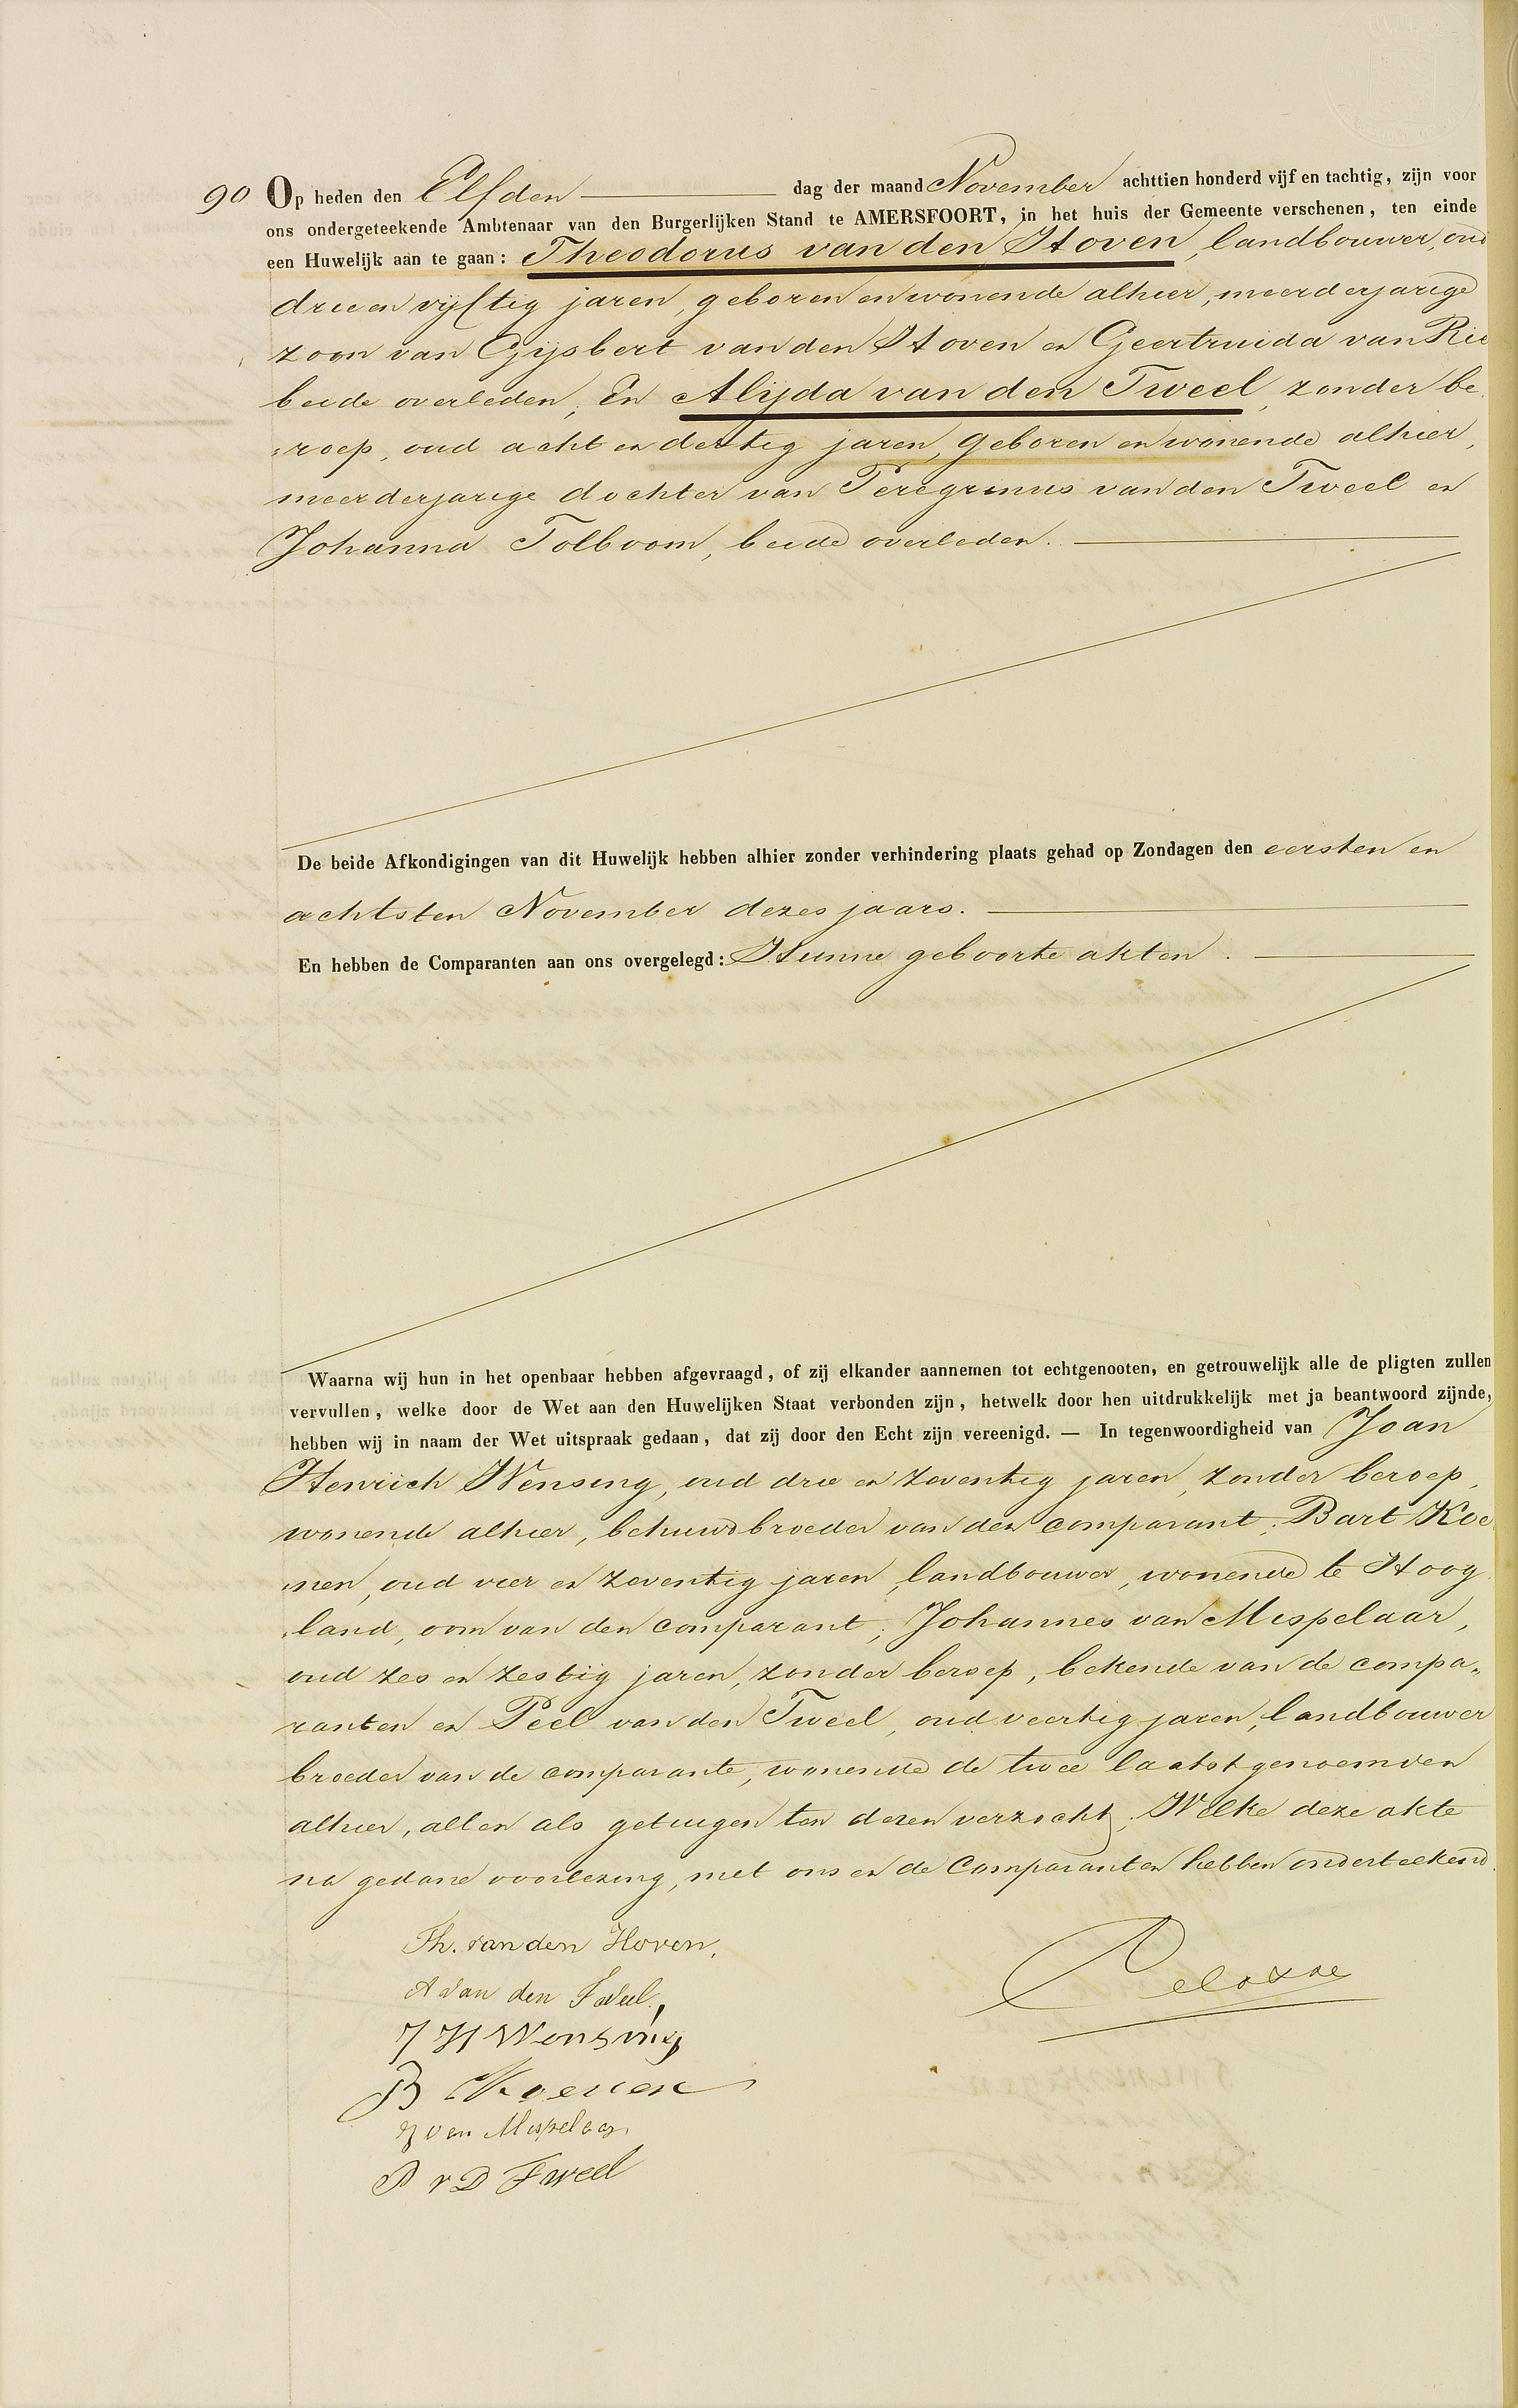 90 Op heden den Elfden dag der maand November achttien honderd vijf en tachtig, zijn voor
ons ondergeteekende Ambtenaar van den Burgerlijken Stand te AMERSFOORT, in het huis der Gemeente verschenen, ten einde
een Huwelijk aan te gaan: Theodorus van den Hoven, landbouwer, oud
drie en vijftig jaren, geboren en wonende alhier, meerderjarige
zoon van Gijsbert van den Hoven en Geertruida van
beide overleden; En Alijda van den Tweel, zonder be
roep, oud acht en dertig jaren, geboren en wonende alhier,
meerderjarige dochter van Peregrinus van den Tweel en
Johanna Tolboom, beide overleden.
De beide Afkondigingen van dit Huwelijk hebben alhier zonder verhindering plaats gehad op Zondagen den eersten en
achtsten November dezes jaars.
En hebben de Comparanten aan ons overgelegd: Hunne geboorte akten.
Waarna wij hun in het openbaar hebben afgevraagd, of zij elkander aannemen tot echtgenooten, en getrouwelijk alle de pligten zullen
vervullen, welke door de Wet aan den Huwelijken Staat verbonden zijn, hetwelk door hen uitdrukkelijk met ja beantwoord zijnde,
hebben wij in naam der Wet uitspraak gedaan, dat zij door den Echt zijn vereenigd. — In tegenwoordigheid van Joan
Henrich Wensing, oud drie en zeventig jaren, zonder beroep,
wonende alhier, behuwdbroeder van den comparant; Bart Koe
nen, oud vier en zeventig jaren, landbouwer, wonende te Hoog
land, oom van den comparant; Johannes van Mispelaar,
oud zes en zestig jaren, zonder beroep, bekende van de compa„
ranten en Peel van den Tweel, oud veertig jaren, landbouwer
broeder van de comparante, wonende de twee laatstgenoemden
alhier, allen als getuigen ten dezen verzocht; Welke deze akte
na gedane voorlezing, met ons en de Comparanten hebben onderteekend.
Th. van den Hoven,
A van den Tweel,
J H Wensing
B Koenen
J van Mispelaar,
P v D Tweel